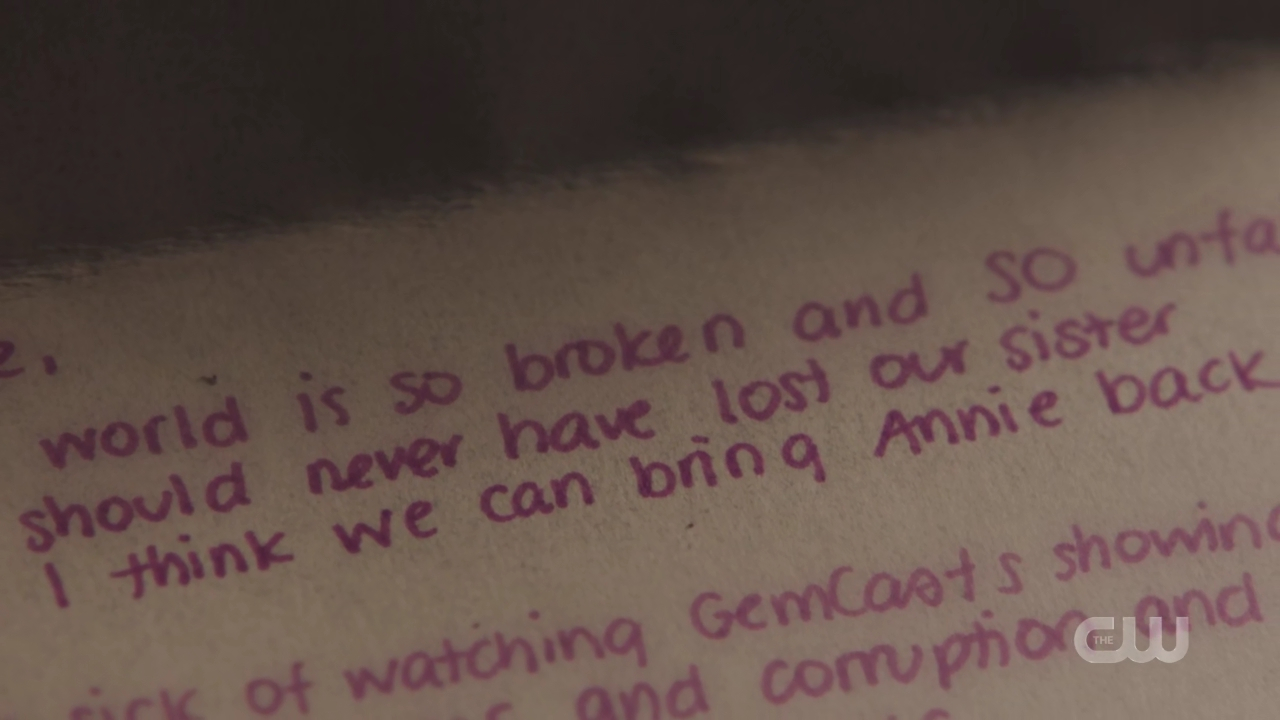 world is so broken and so unfa
should never have lost our sister
I think we can bring Annie back
sick of watching GemCasts showing
and corruption and
THE CW